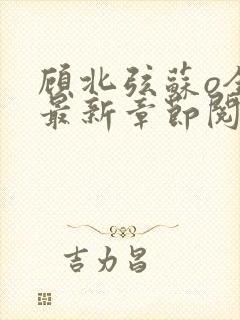 顾北弦苏o全
最新章节阅
吉力昌